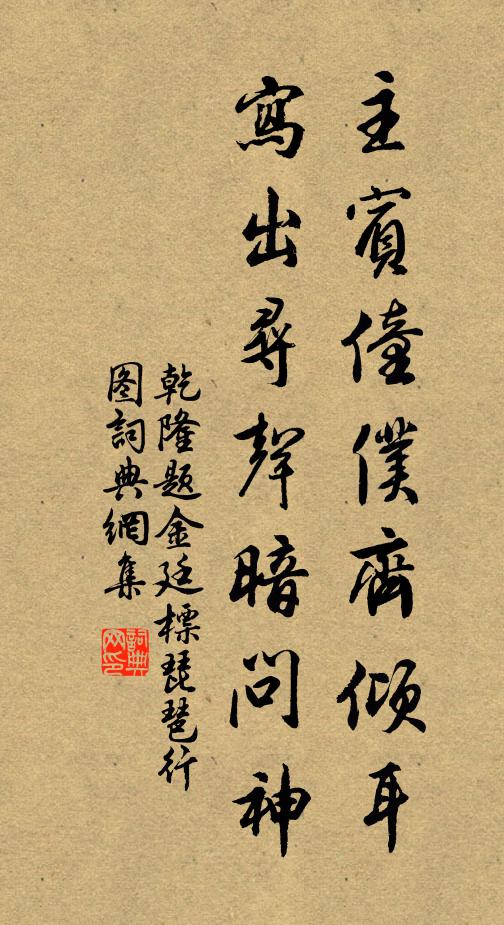 主賓僮僕齊傾耳
寫出尋聲暗問神
乾隆题金廷標琵琶行
图詞典網集
詞典
网印